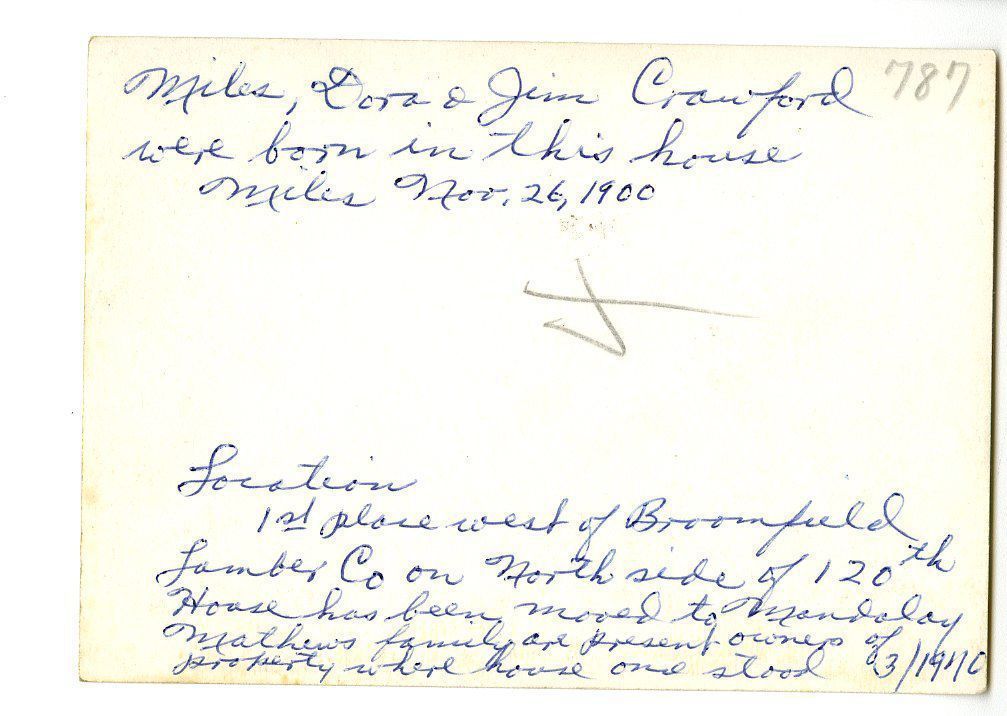 787
Miles, Dora & Jim Crawford
were born in this house
Miles Nov. 26, 1900
Location
1st place west of Broomfield
Lumber Co on North side of 120th
House has been moved to Mandalay
Mathews family are present owners of
property where house once stood